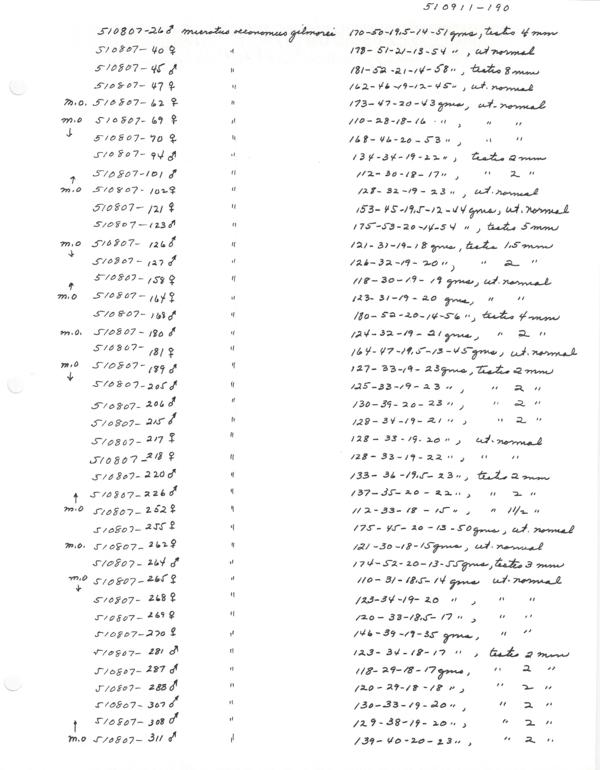 510911-190
510807-26♂ microtus oeconomus gilmorei 170-50-19.5-14-51 gms, testes 4 mm
510807-40♀ " 178-51-21-13-54 ", ut normal
510807-45♂ " 181-52-21-14-58 ", testes 8 mm
510807-47♀ " 162-46-19-12-45 ", ut. normal
m.o. 510807-62♀ " 173-47-20-43 gms, ut. normal
m.o ↓ 510807-69♀ " 110-28-18-16 ", " "
510807-70♀ " 168-46-20-53 ", " "
510807-94♂ " 134-34-19-22 ", testes 2 mm
510807-101♂ " 112-30-18-17 ", " 2 "
↑ m.o 510807-102♀ " 128-32-19-23 ", ut. normal
510807-121♀ " 153-45-19.5-12-44 gms, ut. normal
510807-123♂ " 175-53-20-14-54 ", testes 5 mm
m.o ↓ 510807-126♂ " 121-31-19-18 gms, testes 1.5 mm
510807-127♂ " 126-32-19-20 ", " 2 "
510807-158♀ " 118-30-19-19 gms, ut. normal
↑ m.o 510807-164♀ " 123-31-19-20 gms, " "
510807-168♂ " 180-52-20-14-56 ", testes 4 mm
m.o. 510807-180♂ " 124-32-19-21 gms, " 2 "
510807-181♀ " 164-47-19.5-13-45 gms, ut. normal
m.o ↓ 510807-189♂ " 127-33-19-23 gms, testes 2 mm
510807-205♂ " 125-33-19-23 ", " 2 "
510807-206♂ " 130-39-20-23 ", " 2 "
510807-215♂ " 128-34-19-21 ", " 2 "
510807-217♀ " 128-33-19-20 ", ut. normal
510807-218♀ " 128-33-19-22 ", " "
510807-220♂ " 133-36-19.5-23 ", testes 2 mm
↑ 510807-226♂ " 137-35-20-22 ", " 2 "
m.o 510807-252♀ " 112-33-18-15 ", " 1 1/2 "
510807-255♀ " 175-45-20-13-50 gms, ut. normal
m.o. 510807-262♀ " 121-30-18-15 gms, ut. normal
510807-264♂ " 174-52-20-13-55 gms, testes 3 mm
m.o ↓ 510807-265♀ " 110-31-18.5-14 gms ut. normal
510807-268♀ " 123-34-19-20 ", " "
510807-269♀ " 120-33-18.5-17 ", " "
510807-270♀ " 146-39-19-35 gms, " "
510807-281♂ " 123-34-18-17 ", testes 2 mm
510807-287♂ " 118-29-18-17 gms, " 2 "
510807-288♂ " 120-29-18-18 ", " 2 "
510807-307♂ " 130-33-19-20 ", " 2 "
↑ 510807-308♂ " 129-38-19-20 ", " 2 "
m.o 510807-311♂ " 139-40-20-23 ", " 2 "